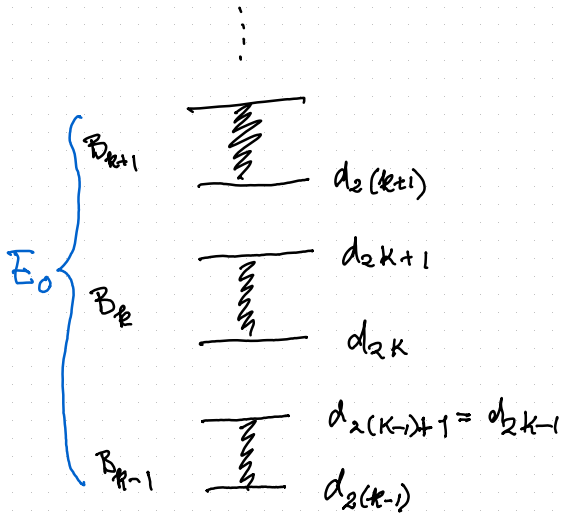 B_{k+1}
d_{2(k+1)}
d_{2k+1}
E_0
B_k
d_{2k}
d_{2(k-1)+1} = d_{2k-1}
B_{k-1}
d_{2(k-1)}